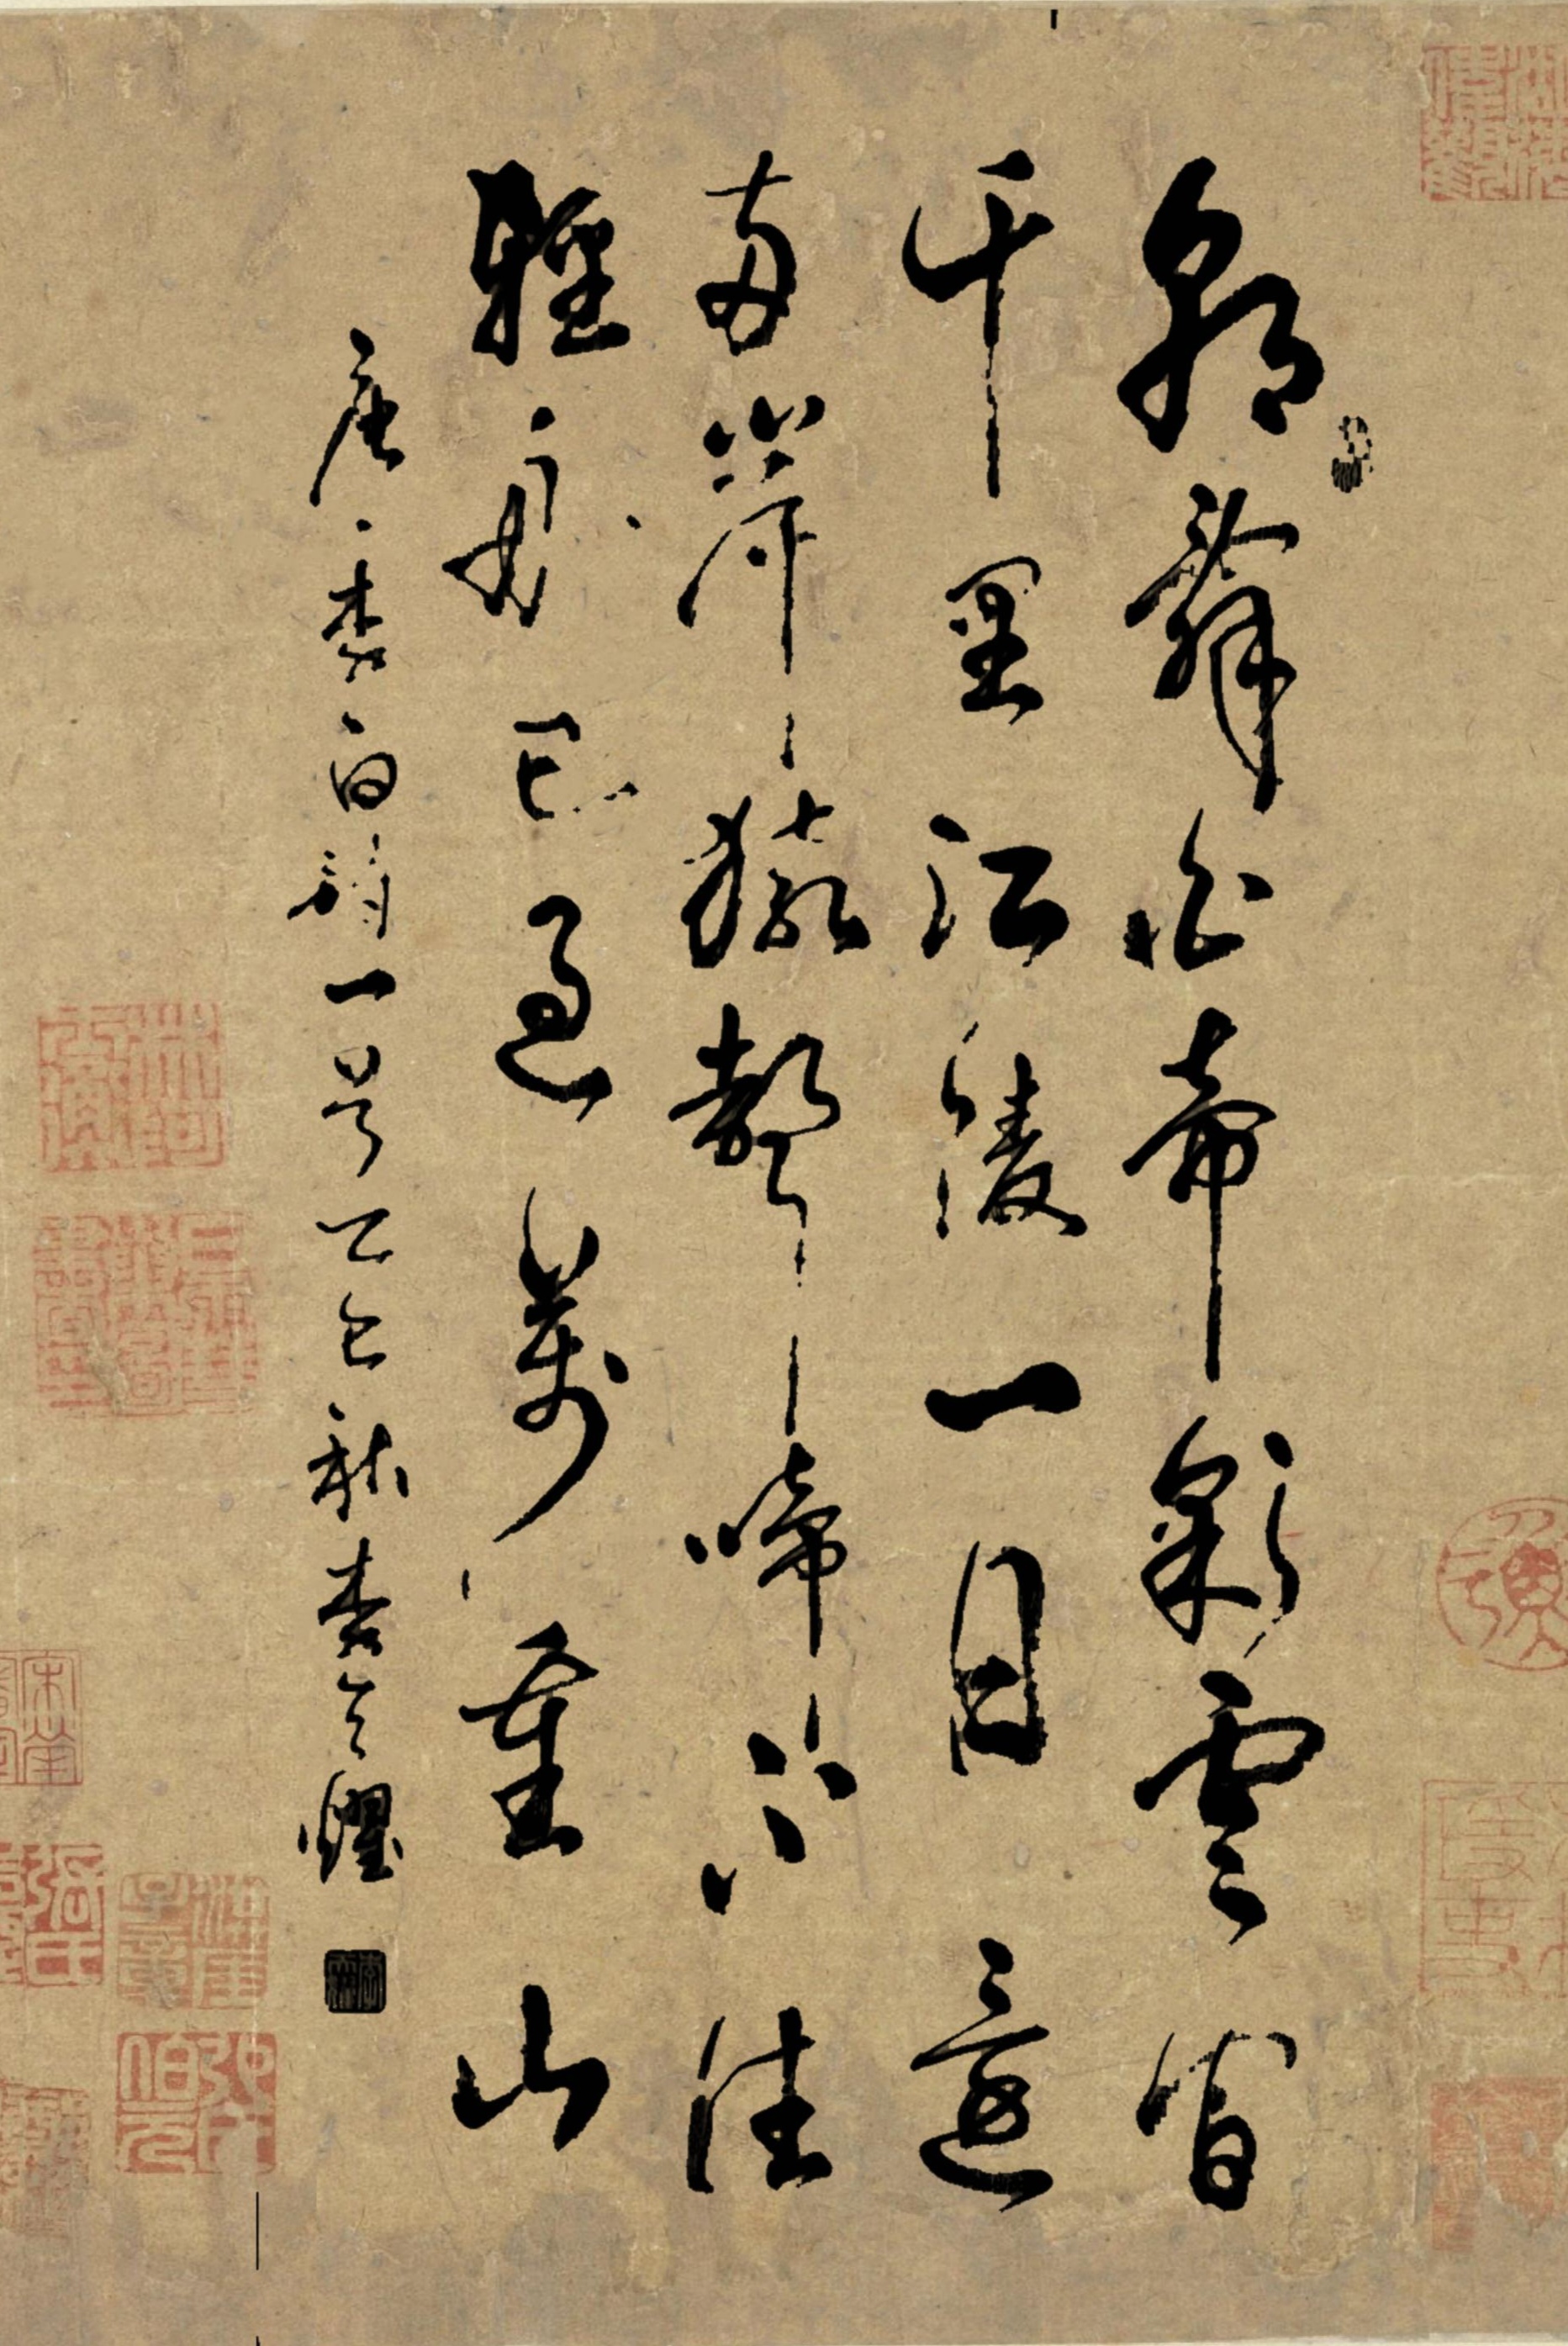 朝辭白帝彩雲間
千里江陵一日還
兩岸猿聲啼不住
輕舟已過萬重山
唐李白詩一首乙巳秋李 耀